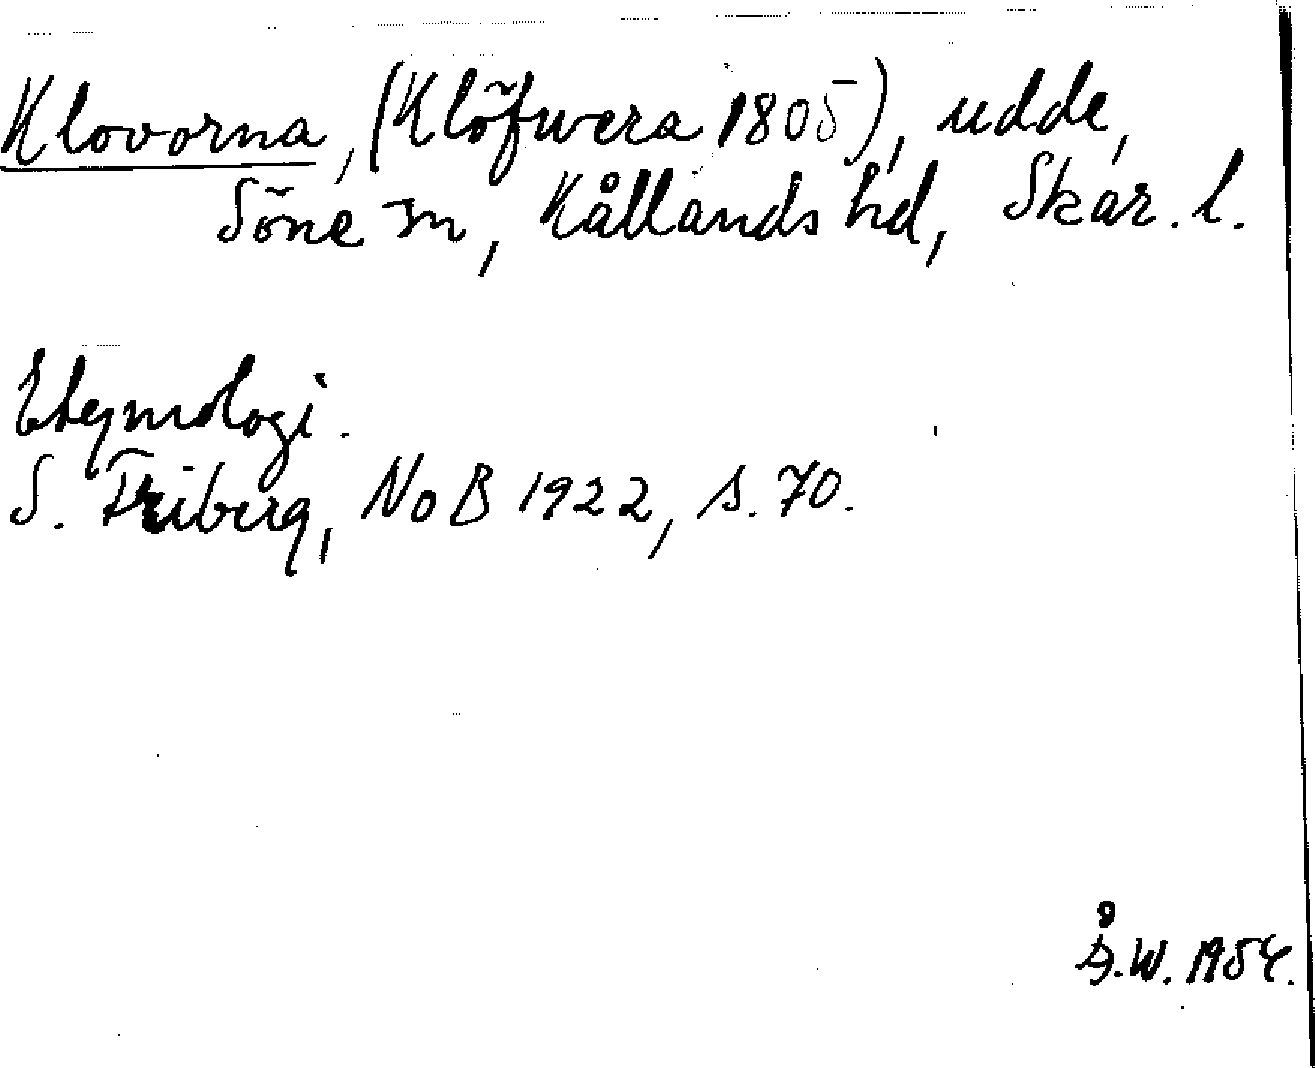 Klovorna, (Klöfwera 1805), udde,
Söne sn, Kållands hd, Skar. l.
Etymologi.
S. Friberg, NoB 1922, s. 70.
Å.W. 1954.